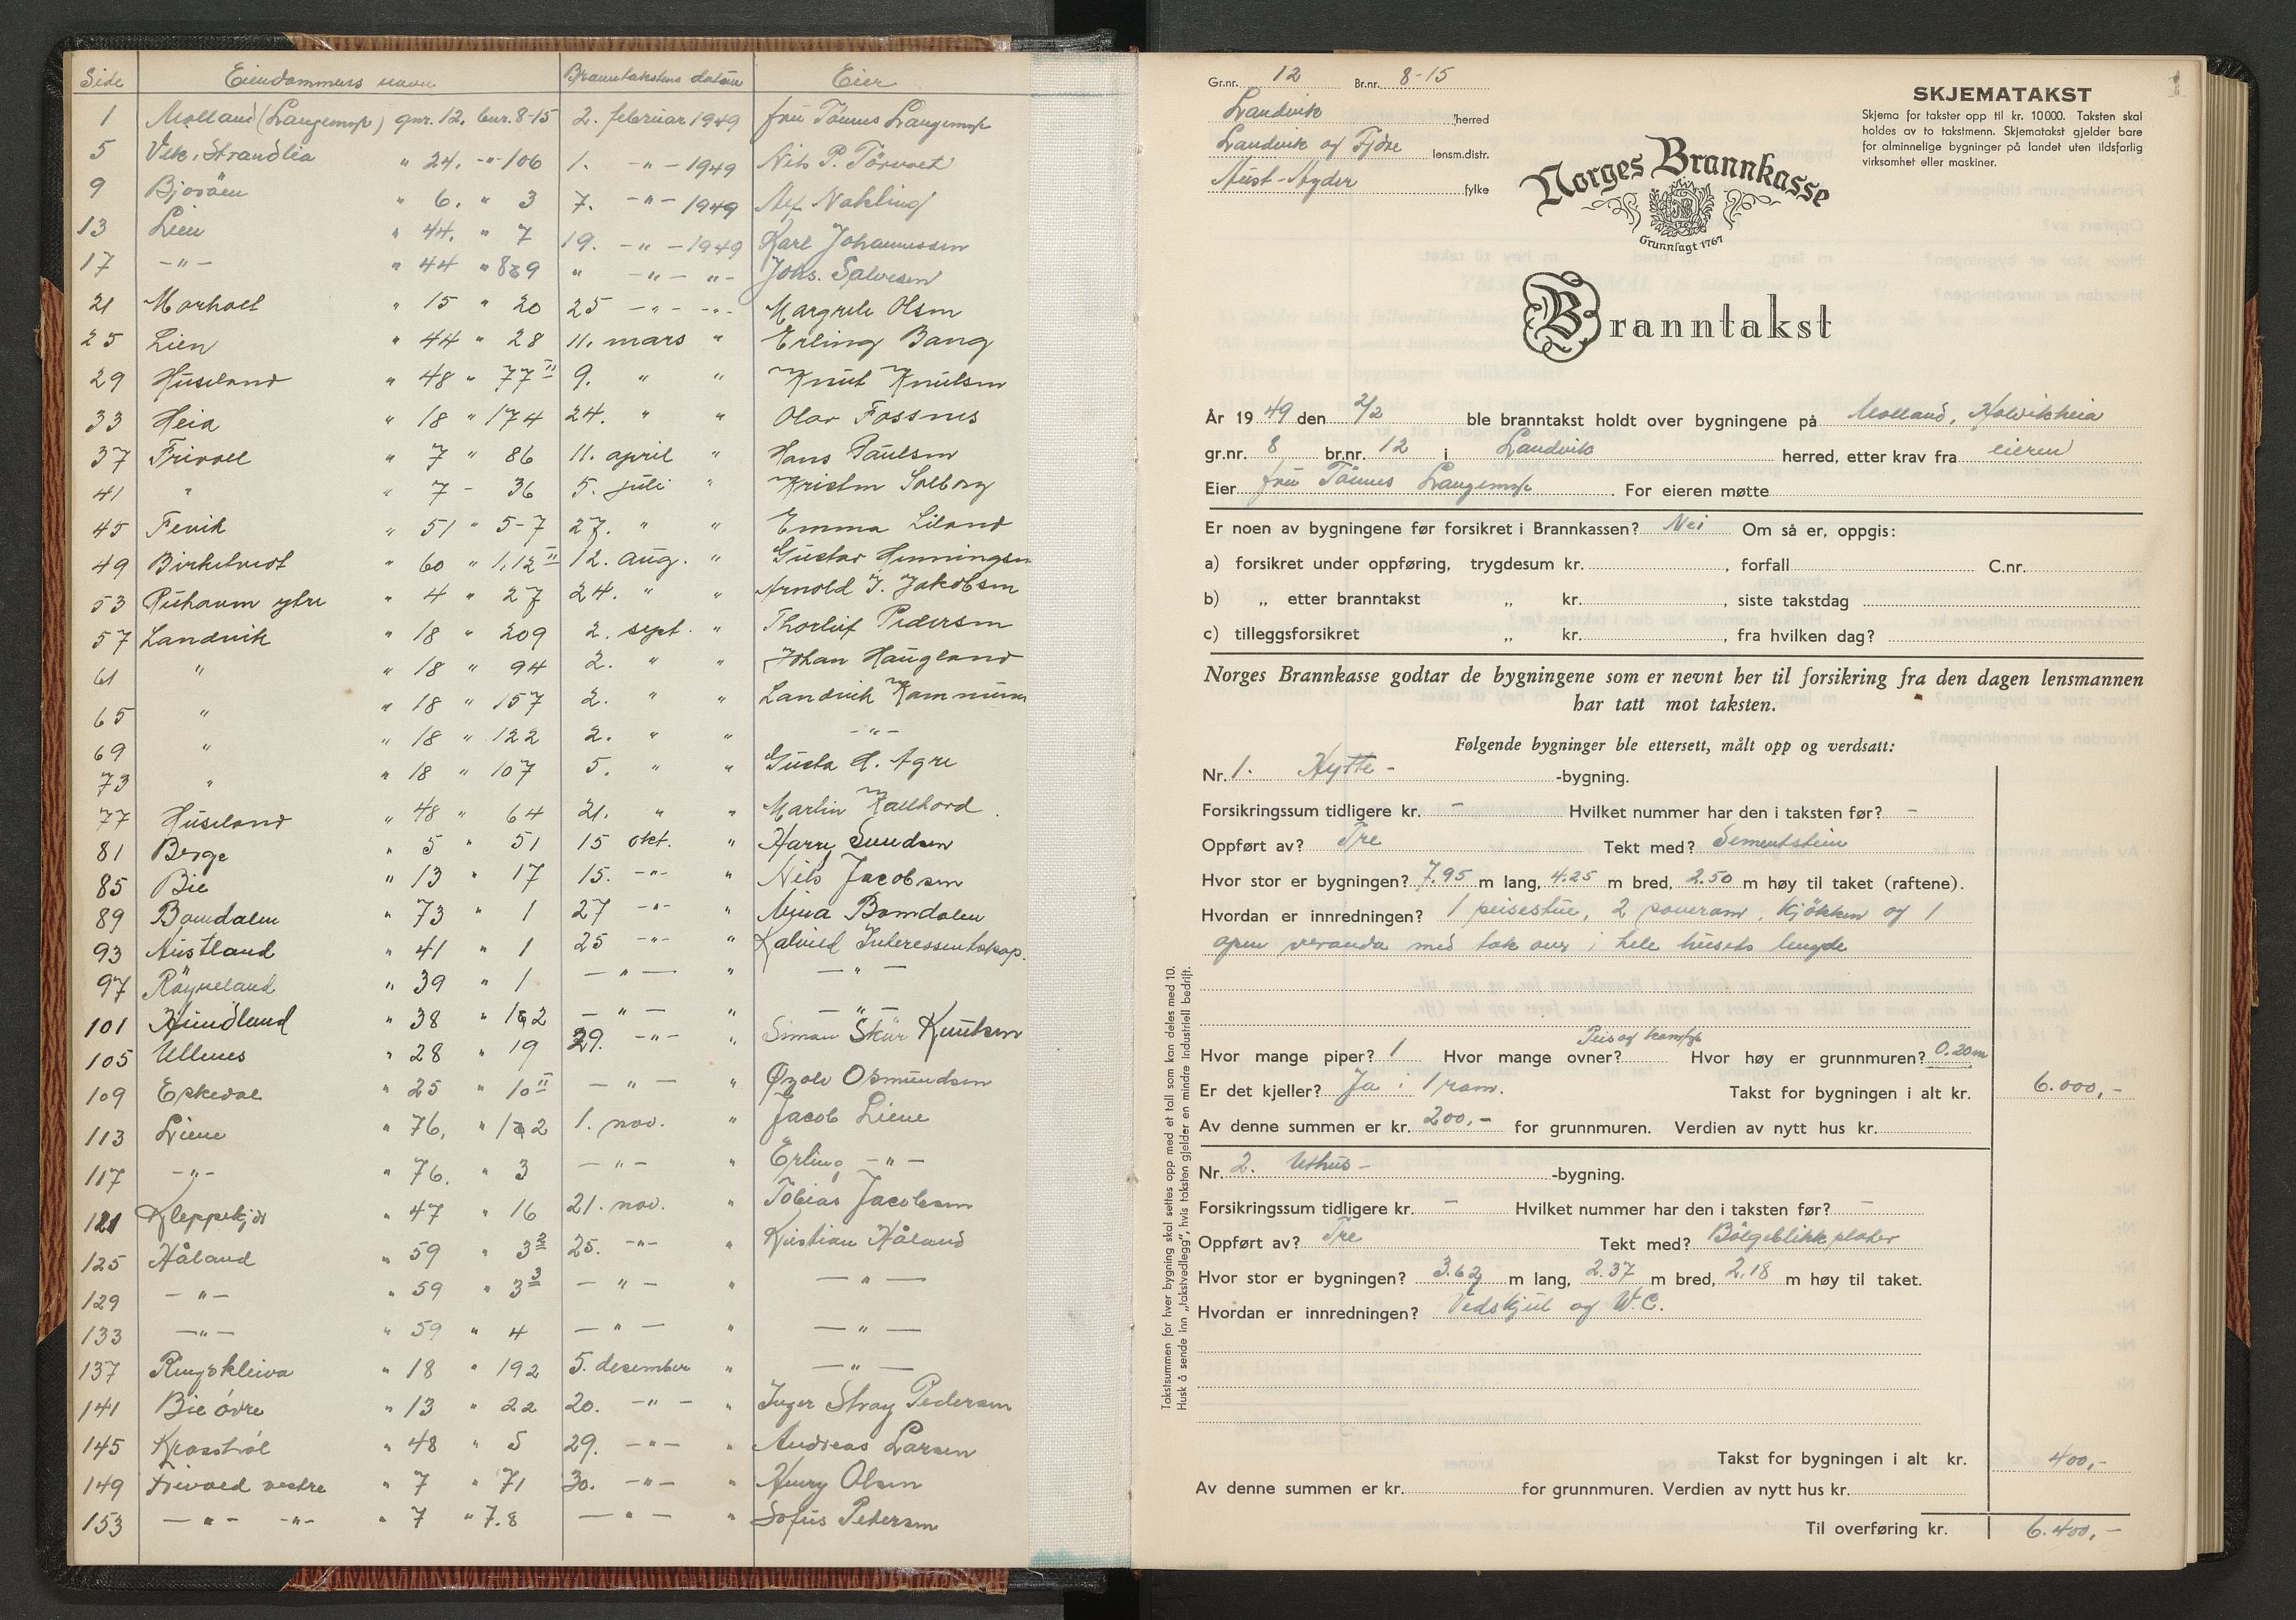 Side Eiendommens navn Branntakstens datum Eier
1 Molland (Langemyr) gnr. 12. bnr. 8-15 2. februar 1949 fru Tønnes Langemyr
5 Vik, Strandlia " 24. -"- 106 1. -"- 1949 Nils P.
9 " 6. " 3 7. -"- 1949
13 Lien " 44. " 7 19. -"- 1949 Karl Johannessen
17 -"- " 44 " 8&9 " -"- "- Johs. Salvesen
21 Morholt " 15 " 20 25 -"- -"- Margrete Olsen
25 Lien " 44 " 28 11. mars " Erling Bang
29 Huseland " 48 " 77 " 9. " " Knut Knutsen
33 Heia " 18 " 174 24. " " Olav Fossnes
37 Frivoll " 7 " 86 11. april " Hans Paulsen
41 " " 7 - 36 5. juli " Kristen Solborg
45 Fevik " 51 " 5-7 27. " " Emma Liland
49 Birketveit " 60 " 1,12 " 12. aug. " Gustav Henningsen
53 ytre " 4 " 27 24. " " Arnold J. Jakobsen
57 Landvik " 18 " 209 2. sept. " Thorleif Pedersen
61 " " 18 " 94 2. " " Johan Haugland
65 " " 18 " 157 2. " " Landvik Kommune
69 " " 18 " 122 2. " " -"-
73 " " 18 " 107 5. " " Gusta H. Agre
77 Huseland " 48 " 64 21. " " Martin
81 Berge " 5 " 51 15 okt. " Harry
85 Bie " 13 " 17 15. -"- " Nils Jacobsen
89 Bomdalen " 73 " 1 27 -"- " Bomdalen
93 Austland " 41 " 1 25 -"- " Kalvild Interessentskap.
97 Røyneland " 39 " 1 -"- " -"-
101 Hundland " 38 " 1&2 -"- " -"-
105 Ullenes " 28 " 19 29. -"- " Simon Knutsen
109 Eskedal " 25 " 10 " -"- " Osmundsen
113 Liene " 76, " 1&2 1. nov. " Jacob Liene
117 -"- " 76. " 3 -"- " Erling -"-
121 Kleppekjær " 47 " 16 21. nov. " Tobias Jacobsen
125 Håland " 59 " 3² 25. -"- " Kristian Håland
129 -"- " 59 " 3³ -"- " -"-
133 -"- " 59 " 4 -"- " -"-
137 Ringskleiva " 18 " 192 5. desember " -"-
141 Bie övre " 13 " 22 20. -"- " Inger Stray Pedersen
145 " 48 " 5 29. -"- " Andreas Larsen
149 Frivold vestre " 7 " 71 30. -"- " Henry Olsen
153 -"- -"- " 7 " 7.8 -"- " Sofus Pedersen
1
Gr.nr. 12 Br.nr. 8-15
Landvik herred
Landvik og Fjære lensm.distr.
Aust-Agder fylke
SKJEMATAKST
Skjema for takster opp til kr. 10 000. Taksten skal
holdes av to takstmenn. Skjematakst gjelder bare
for alminnelige bygninger på landet uten ildsfarlig
virksomhet eller maskiner.
Norges Brannkasse
Grunnlagt 1767
Branntakst
År 19 49 den 2/2 ble branntakst holdt over bygningene på Molland, Holvikheia
gr.nr. 8 br.nr. 12 i Landvik herred, etter krav fra eieren
Eier fru Tønnes Langemyr. For eieren møtte
Er noen av bygningene før forsikret i Brannkassen? Nei Om så er, oppgis:
a) forsikret under oppføring, trygdesum kr. , forfall C.nr.
b) „ etter branntakst „ kr. , siste takstdag
c) tilleggsforsikret „ kr. , fra hvilken dag?
Norges Brannkasse godtar de bygningene som er nevnt her til forsikring fra den dagen lensmannen
har tatt mot taksten.
Følgende bygninger ble ettersett, målt opp og verdsatt:
Nr. 1. Hytte - -bygning.
Forsikringssum tidligere kr. - Hvilket nummer har den i taksten før? -
Oppført av? Tre Tekt med? Sementstein
Hvor stor er bygningen? 7.95 m lang, 4.25 m bred, 2.50 m høy til taket (raftene).
Hvordan er innredningen? 1 peisestue, 2 soverom, kjökken og 1
open veranda med tak over i hele husets lengde
Peis og komfyr
Hvor mange piper? 1 Hvor mange ovner? Hvor høy er grunnmuren? 0.20 m
Er det kjeller? Ja i 1 rom. Takst for bygningen i alt kr. 6.000,-
Av denne summen er kr. 200,- for grunnmuren. Verdien av nytt hus kr.
Nr. 2. Uthus - -bygning.
Forsikringssum tidligere kr. - Hvilket nummer har den i taksten før? -
Oppført av? Tre Tekt med? Bölgeblikk plater
Hvor stor er bygningen? 3.62 m lang, 2.37 m bred, 2.18 m høy til taket.
Hvordan er innredningen? Vedskjul og W.C.
Takst for bygningen i alt kr. 400,-
Av denne summen er kr. for grunnmuren. Verdien av nytt hus kr.
Til overføring kr. 6.400,-
Takstsummen for hver bygning skal settes opp med et tall som kan deles med 10.
Husk å sende inn „takstvedlegg", hvis taksten gjelder en mindre industriell bedrift.